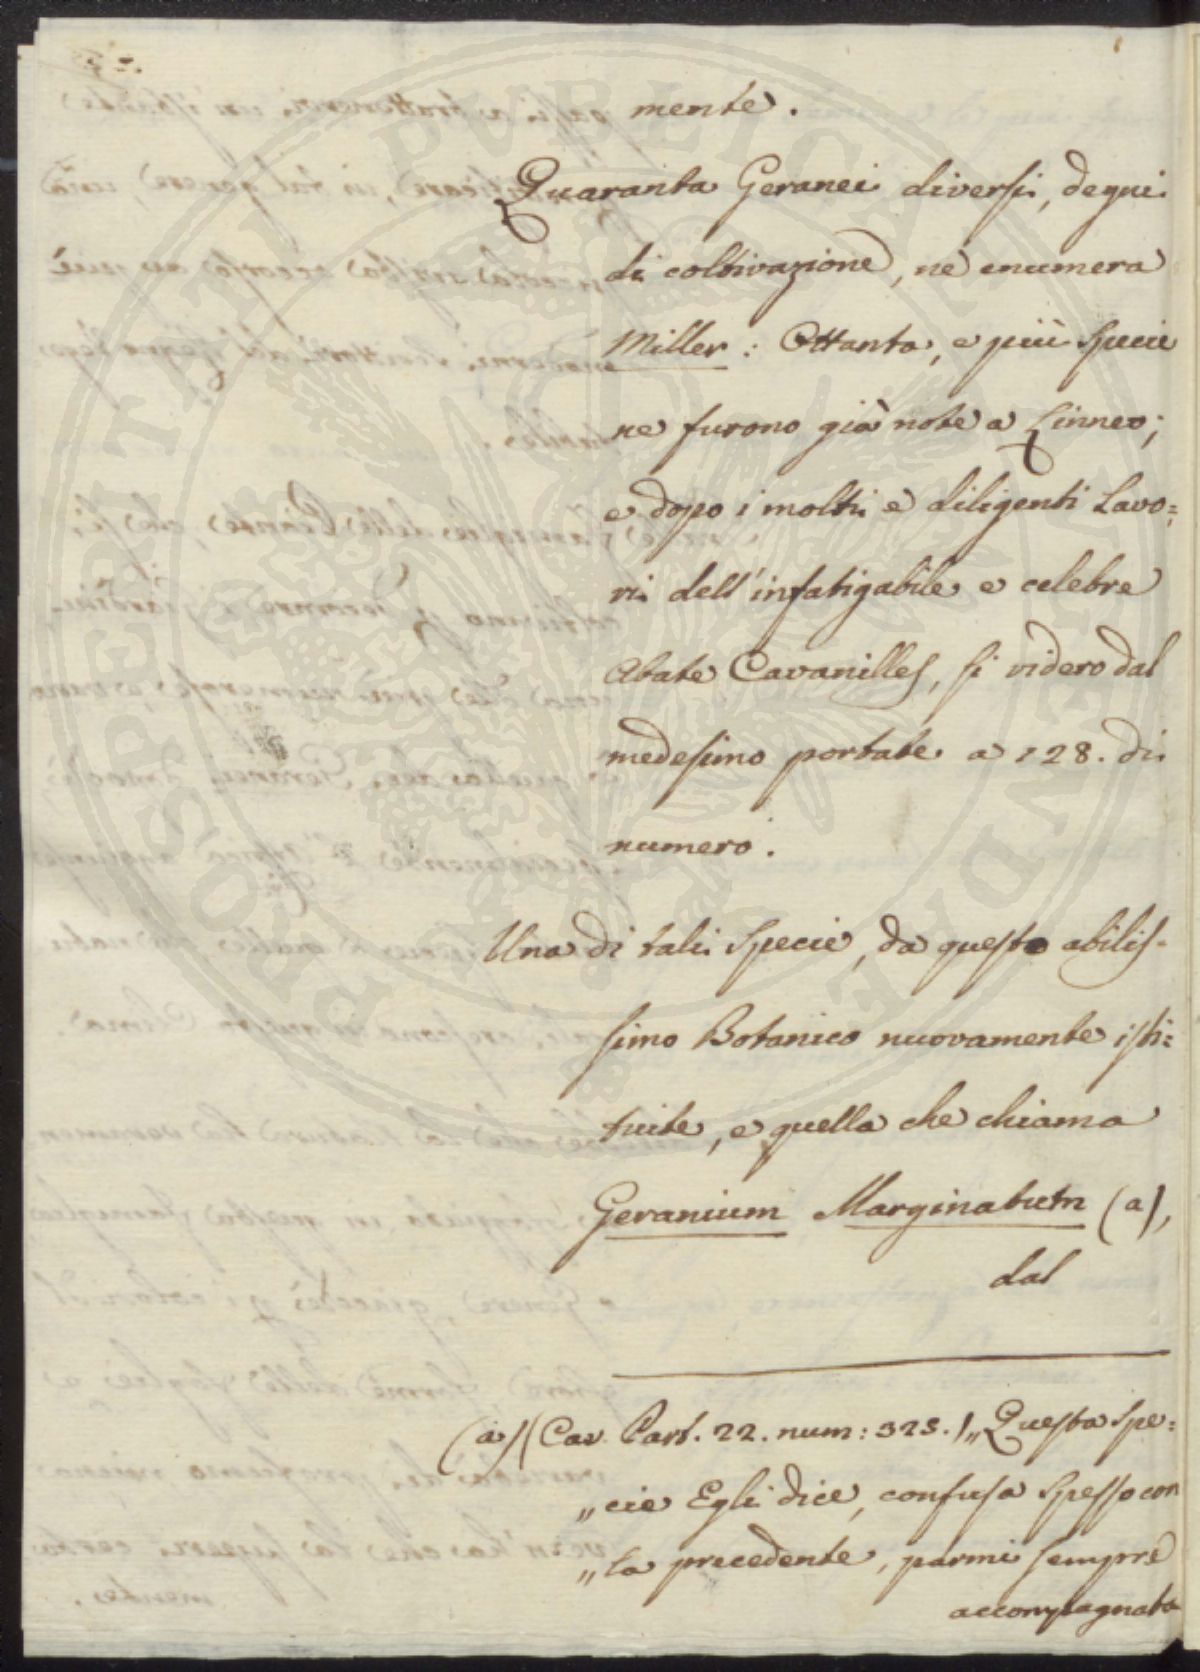 mente.
Quaranta Geranei diversi, degni
di coltivazione, ne enumera
Miller: Ottanta, e più Specie
ne furono già note a Linneo;
e dopo i molti e diligenti Lavo=
ri dell'infatigabile e celebre
Abate Cavanilles, si videro dal
medesimo portate a 128. di
numero.
Una di tali Specie, da questo abilis=
simo Botanico nuovamente isti=
tuite, e quella che chiama
Geranium Marginatum (a),
dal
(a) (Cav. Part. 22. num: 325.) „Questa Spe=
„cie Egli dice, confusa Spesso con
„la precedente, parmi sempre
accompagnata
PROSPERITATI PUBLICAE AUGENDAE